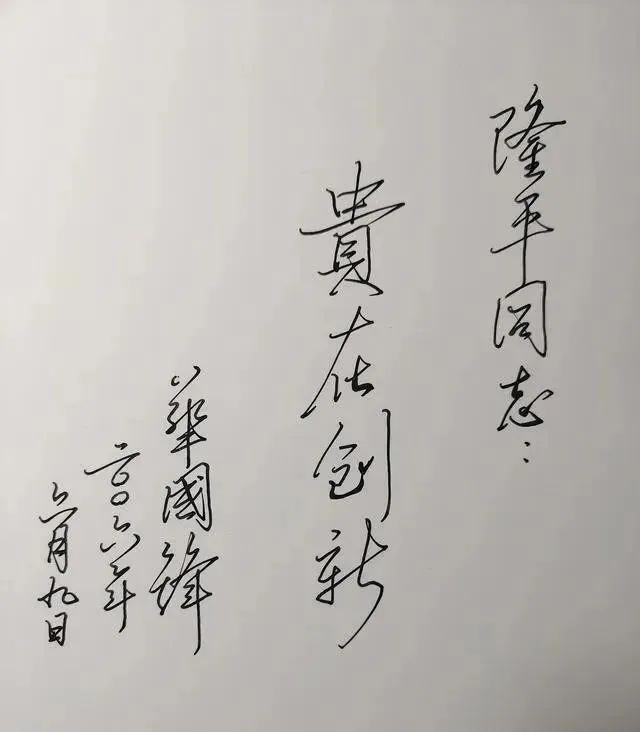 隆平同志：
貴在创新
華國鋒
二〇〇六年
六月九日